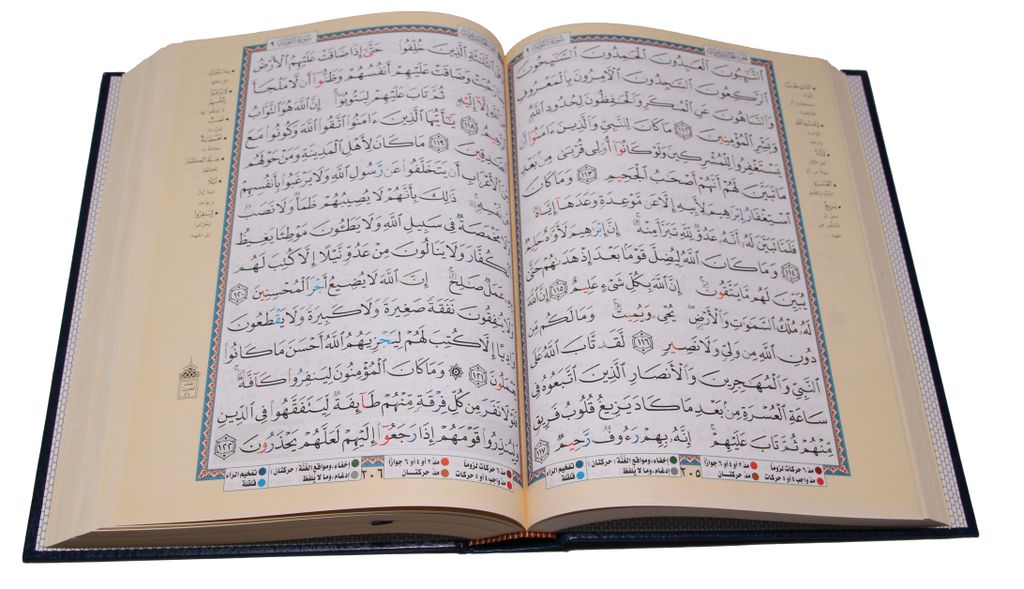 سورة التوبة ٩
ٱلتَّٰٓئِبُونَ ٱلْعَٰبِدُونَ ٱلْحَٰمِدُونَ ٱلسَّٰٓئِحُونَ
ٱلرَّٰكِعُونَ ٱلسَّٰجِدُونَ ٱلْءَامِرُونَ بِٱلْمَعْرُوفِ
وَٱلنَّاهُونَ عَنِ ٱلْمُنكَرِ وَٱلْحَٰفِظُونَ لِحُدُودِ ٱللَّهِ
وَبَشِّرِ ٱلْمُؤْمِنِينَ ١١٢ مَا كَانَ لِلنَّبِيِّ وَٱلَّذِينَ ءَامَنُوٓا۟ أَن
يَسْتَغْفِرُوا۟ لِلْمُشْرِكِينَ وَلَوْ كَانُوٓا۟ أُو۟لِى قُرْبَىٰ مِنۢ بَعْدِ
مَا تَبَيَّنَ لَهُمْ أَنَّهُمْ أَصْحَٰبُ ٱلْجَحِيمِ ١١٣ وَمَا كَانَ
ٱسْتِغْفَارُ إِبْرَٰهِيمَ لِأَبِيهِ إِلَّا عَن مَّوْعِدَةٍ وَعَدَهَآ إِيَّاهُ
فَلَمَّا تَبَيَّنَ لَهُۥٓ أَنَّهُۥ عَدُوٌّ لِّلَّهِ تَبَرَّأَ مِنْهُ إِنَّ إِبْرَٰهِيمَ لَأَوَّٰهٌ حَلِيمٌ
١١٤ وَمَا كَانَ ٱللَّهُ لِيُضِلَّ قَوْمًۢا بَعْدَ إِذْ هَدَىٰهُمْ حَتَّىٰ
يُبَيِّنَ لَهُم مَّا يَتَّقُونَ إِنَّ ٱللَّهَ بِكُلِّ شَىْءٍ عَلِيمٌ ١١٥ إِنَّ ٱللَّهَ
لَهُۥ مُلْكُ ٱلسَّمَٰوَٰتِ وَٱلْأَرْضِ يُحْىِۦ وَيُمِيتُ وَمَا لَكُم مِّن
دُونِ ٱللَّهِ مِن وَلِىٍّ وَلَا نَصِيرٍ ١١٦ لَّقَد تَّابَ ٱللَّهُ عَلَى
ٱلنَّبِىِّ وَٱلْمُهَٰجِرِينَ وَٱلْأَنصَارِ ٱلَّذِينَ ٱتَّبَعُوهُ فِى
سَاعَةِ ٱلْعُسْرَةِ مِنۢ بَعْدِ مَا كَادَ يَزِيغُ قُلُوبُ فَرِيقٍ
مِّنْهُمْ ثُمَّ تَابَ عَلَيْهِمْ إِنَّهُۥ بِهِمْ رَءُوفٌ رَّحِيمٌ ١١٧
مدّ ٦ حركات لزوماً مدّ ٢ أو ٤ أو ٦ جوازاً إخفاء، ومواقع الغنّة (حركتان) تفخيم الراء
مدّ واجب ٤ أو ٥ حركات مدّ حركتان ٢٠٥ إدغام، وما لا يُلفظ قلقلة
سورة التوبة ٩
ٱلثَّلَٰثَةِ ٱلَّذِينَ خُلِّفُوا۟ حَتَّىٰٓ إِذَا ضَاقَتْ عَلَيْهِمُ ٱلْأَرْضُ
رَحُبَتْ وَضَاقَتْ عَلَيْهِمْ أَنفُسُهُمْ وَظَنُّوٓا۟ أَن لَّا مَلْجَأَ
إِلَّآ إِلَيْهِ ثُمَّ تَابَ عَلَيْهِمْ لِيَتُوبُوٓا۟ إِنَّ ٱللَّهَ هُوَ ٱلتَّوَّابُ
١١٨ يَٰٓأَيُّهَا ٱلَّذِينَ ءَامَنُوا۟ ٱتَّقُوا۟ ٱللَّهَ وَكُونُوا۟ مَعَ
١١٩ مَا كَانَ لِأَهْلِ ٱلْمَدِينَةِ وَمَنْ حَوْلَهُم
ٱلْأَعْرَابِ أَن يَتَخَلَّفُوا۟ عَن رَّسُولِ ٱللَّهِ وَلَا يَرْغَبُوا۟ بِأَنفُسِهِمْ
نَّفْسِهِۦ ذَٰلِكَ بِأَنَّهُمْ لَا يُصِيبُهُمْ ظَمَأٌ وَلَا نَصَبٌ
مَخْمَصَةٌ فِى سَبِيلِ ٱللَّهِ وَلَا يَطَـُٔونَ مَوْطِئًا يَغِيظُ
ٱلْكُفَّارَ وَلَا يَنَالُونَ مِنْ عَدُوٍّ نَّيْلًا إِلَّا كُتِبَ لَهُم
عَمَلٌ صَٰلِحٌ إِنَّ ٱللَّهَ لَا يُضِيعُ أَجْرَ ٱلْمُحْسِنِينَ ١٢٠
وَلَا يُنفِقُونَ نَفَقَةً صَغِيرَةً وَلَا كَبِيرَةً وَلَا يَقْطَعُونَ
وَادِيًا إِلَّا كُتِبَ لَهُمْ لِيَجْزِيَهُمُ ٱللَّهُ أَحْسَنَ مَا كَانُوا۟
يَعْمَلُونَ ١٢١ وَمَا كَانَ ٱلْمُؤْمِنُونَ لِيَنفِرُوا۟ كَآفَّةً
فَلَوْلَا نَفَرَ مِن كُلِّ فِرْقَةٍ مِّنْهُمْ طَآئِفَةٌ لِّيَتَفَقَّهُوا۟ فِى ٱلدِّينِ
وَلِيُنذِرُوا۟ قَوْمَهُمْ إِذَا رَجَعُوٓا۟ إِلَيْهِمْ لَعَلَّهُمْ يَحْذَرُونَ ١٢٢
مدّ ٦ حركات لزوماً مدّ ٢ أو ٤ أو ٦ جوازاً إخفاء، ومواقع الغنّة (حركتان) تفخيم الراء
مدّ واجب ٤ أو ٥ حركات مدّ حركتان ٢٠٦ إدغام، وما لا يُلفظ قلقلة